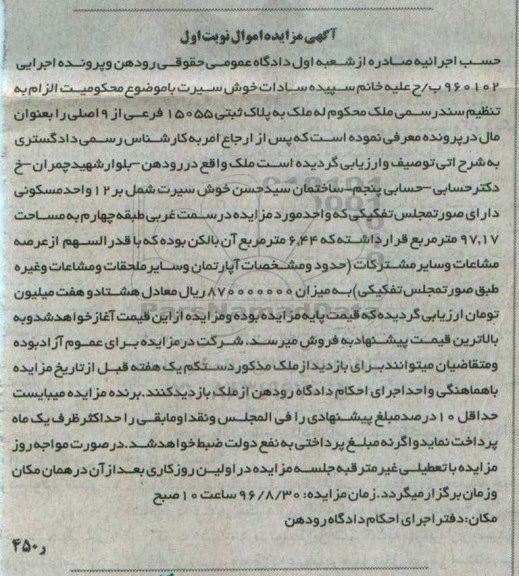 آگهی مزایده اموال نوبت اول
حسب اجرائیه صادره از شعبه اول دادگاه عمومی حقوقی رودهن و پرونده اجرایی
۹۶۰۱۰۲ ب/ح علیه خانم سپیده سادات خوش سیرت با موضوع محکومیت الزام به
تنظیم سند رسمی ملک محکوم له ملک به پلاک ثبتی ۱۵۰۵۵ فرعی از ۹ اصلی را بعنوان
مال در پرونده معرفی نموده است که پس از ارجاع امر به کارشناس رسمی دادگستری
به شرح اتی توصیف و ارزیابی گردیده است ملک واقع در رودهن -بلوار شهید چمران -خ
دکتر حسابی -حسابی پنجم-ساختمان سید حسن خوش سیرت شمل بر ۱۲ واحد مسکونی
دارای صورتمجلس تفکیکی که واحد مورد مزایده در سمت غربی طبقه چهارم به مساحت
۹۷,۱۷ متر مربع قرار داشته که ۶,۴۴ متر مربع آن بالکن بوده که با قدر السهم از عرصه
مشاعات و سایر مشترکات (حدود و مشخصات آپارتمان و سایر ملحقات و مشاعات و غیره
طبق صورتمجلس تفکیکی) به میزان ۸۷۰۰۰۰۰۰۰ ریال معادل هشتاد و هفت میلیون
تومان ارزیابی گردیده که قیمت پایه مزایده بوده و مزایده از این قیمت آغاز خواهد شد و به
بالاترین قیمت پیشنهاد به فروش میرسد. شرکت در مزایده برای عموم آزاد بوده
و متقاضیان میتوانند برای بازدید از ملک مذکور دستکم یک هفته قبل از تاریخ مزایده
با هماهنگی واحد اجرای احکام دادگاه رودهن از ملک بازدید کنند. برنده مزایده میبایست
حداقل ۱۰ درصد مبلغ پیشنهادی را فی المجلس و نقدا و مابقی را حداکثر ظرف یک ماه
پرداخت نماید و اگر نه مبلغ پرداختی به نفع دولت ضبط خواهد شد. در صورت مواجه روز
مزایده با تعطیلی غیر مترقبه جلسه مزایده در اولین روز کاری بعد از آن در همان مکان
و زمان برگزار میگردد. زمان مزایده: ۹۶/۸/۳۰ ساعت ۱۰ صبح
مکان: دفتر اجرای احکام دادگاه رودهن
ر۴۵۰